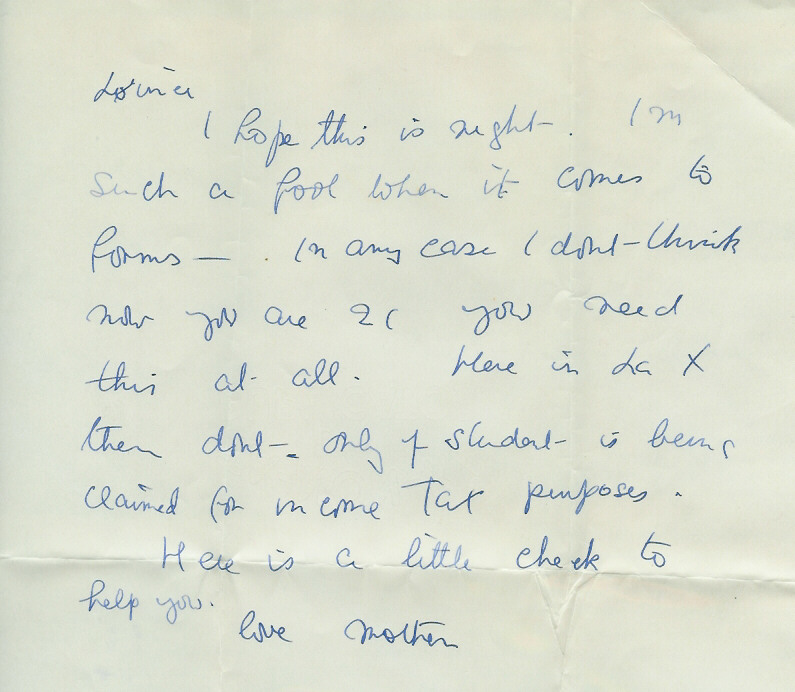 Louica
I hope this is right. Im
Such a fool when it comes to
forms — . In any case I dont think
now you are 21 you need
this at all. Here in La X
them dont - only if student is being
claimed for income Tax purposes.
Here is a little check to
help you.
love mother